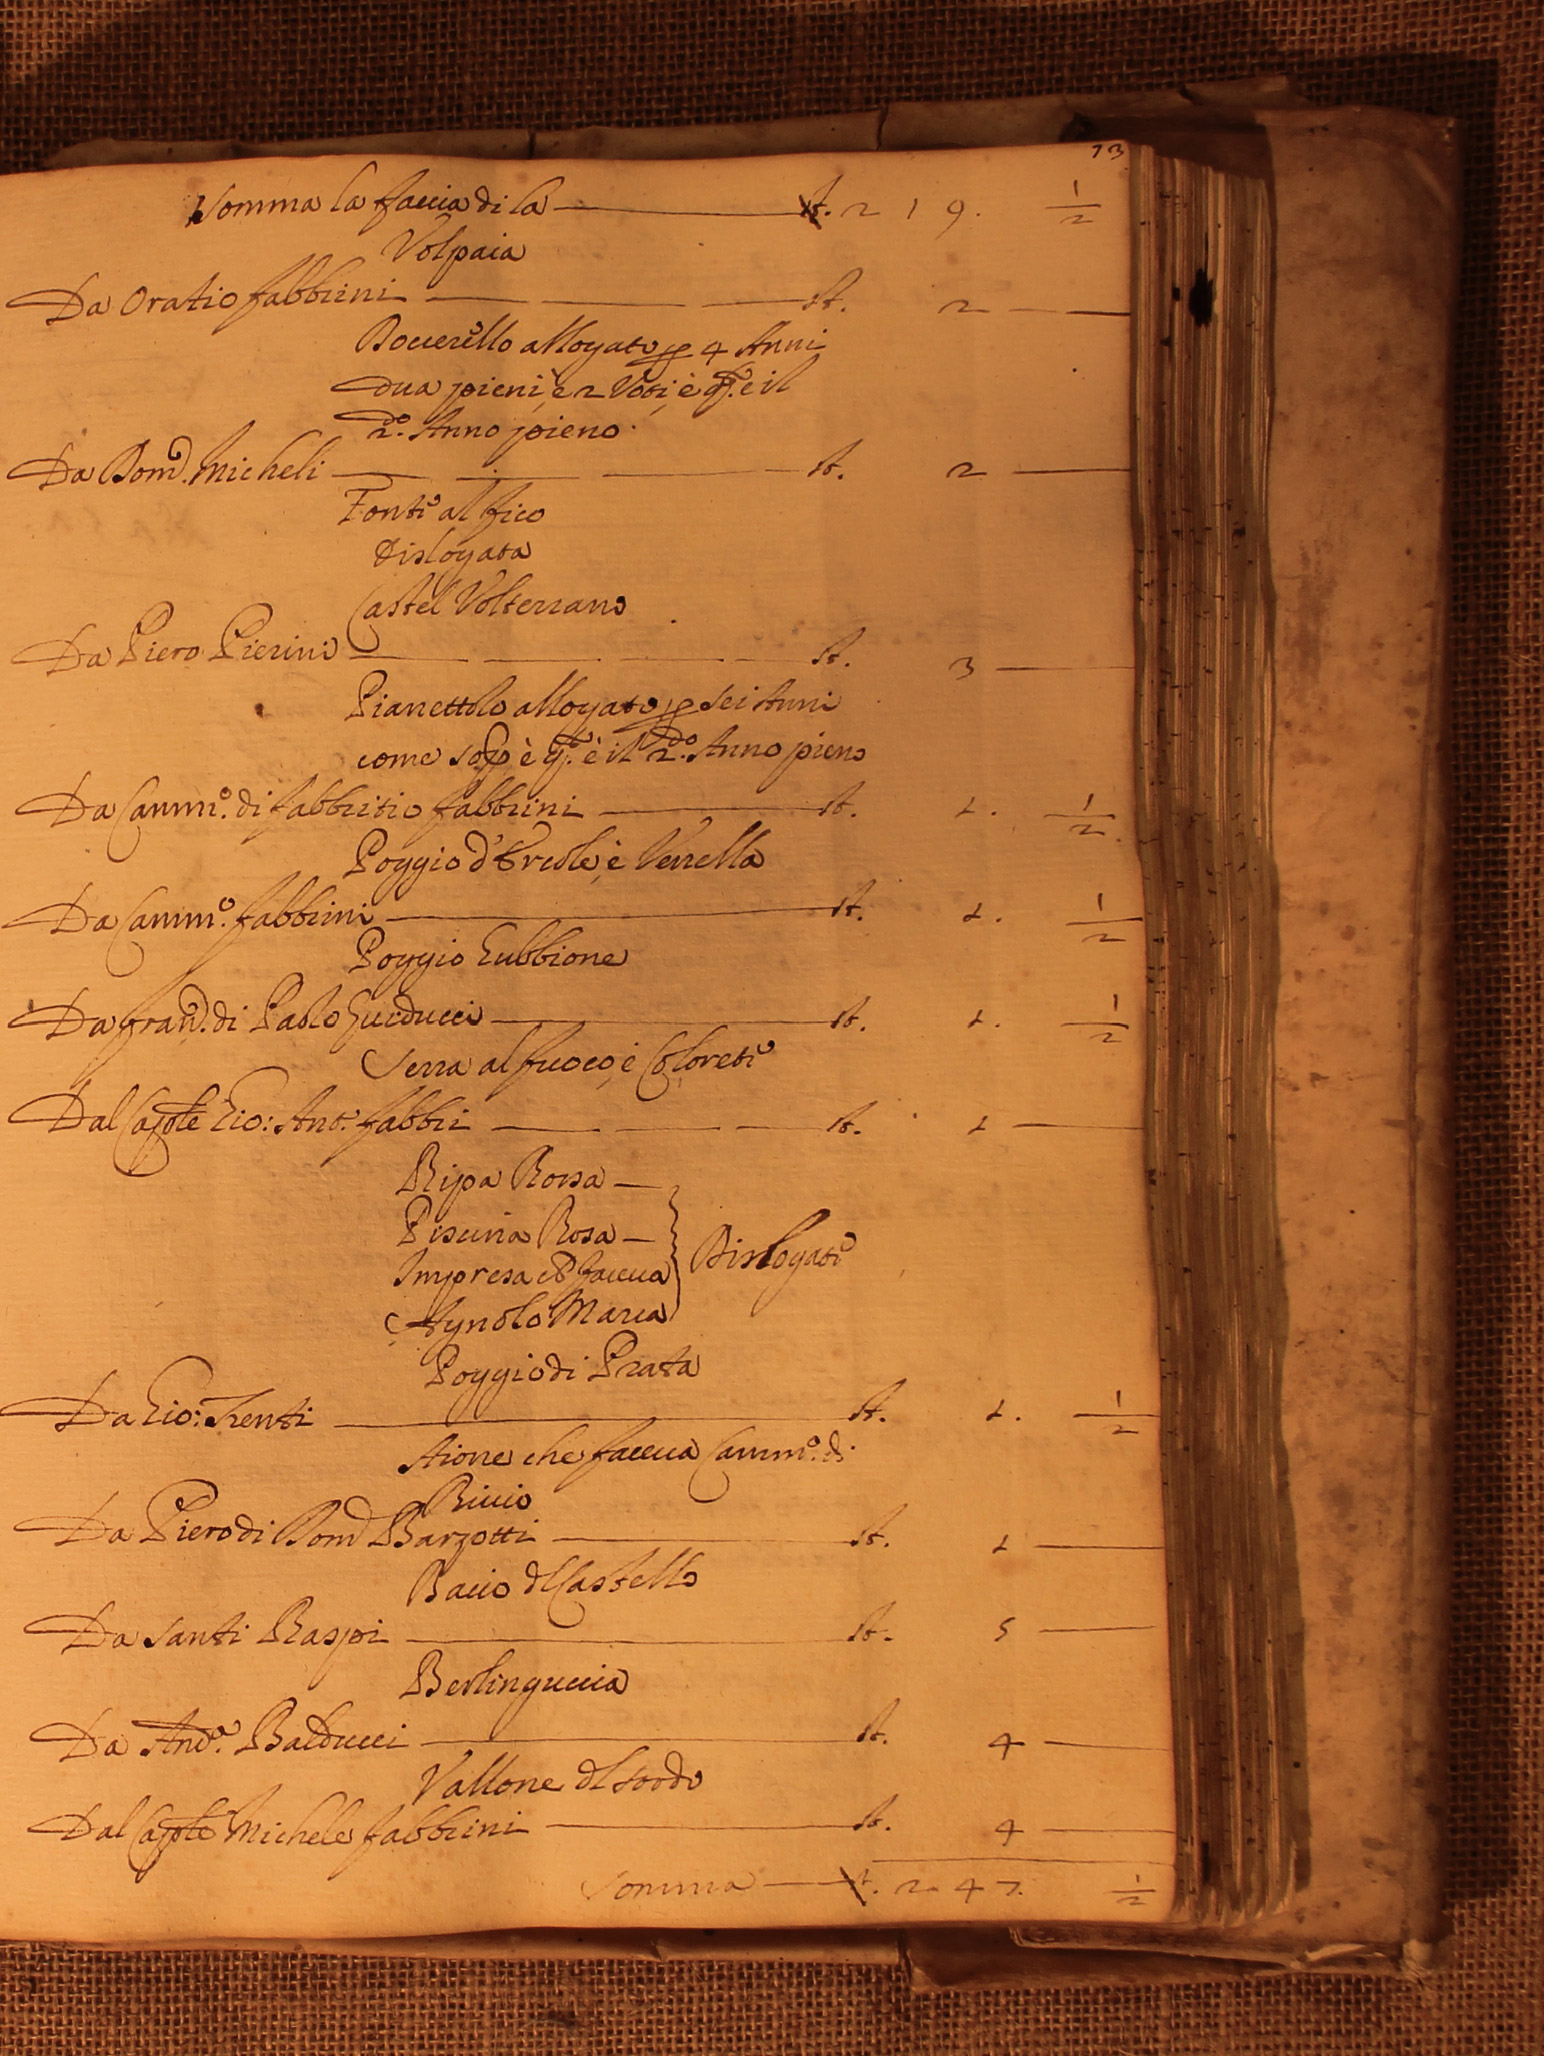 73
Somma la faccia di la — st. 219. 1/2
Volpaia
Da Oratio fabbrini — st. 2 —
Boccerello allogato p 4 Anni
dua pieni, e 2 Voti, è q.to e il
2.do Anno pieno.
Da Dom.co Micheli — st. 2 —
Fonti al fico
Dislogata
Castel Volterrano
Da Piero Pierini — st. 3 —
Pianettolo allogato p sei Anni
come sop.a è q.to è il 2.do Anno pieno
Da Camm.o di fabbritio fabbrini — st. 1. 1/2
Poggio d'Ercole, è Venella
Da Camm.o fabbrini — st. 1. 1/2
Poggio Gubbione
Da fran.co di Paolo Guiducci — st. 1. 1/2
Serra al fuoco, è Coloreti
Dal Cap.le Gio: Ant.o fabbri — st. 1 —
Ripa Rossa —
Piscina Rosa —
Impresa che faceua
Agnolo Maria
Dislogati
Poggio di Prata
Da Gio: Trenti — st. 1. 1/2
Aione che faceua Camm.o di
Riccio
Da Piero di Dom.co Barzotti — st. 1 —
Bacio dl Castello
Da Santi Raspi — st. 5 —
Berlinguccia
Da And.a Balducci — st. 4 —
Vallone dl sordo
Dal Cap.le Michele fabbrini — st. 4 —
Somma — st. 247. 1/2